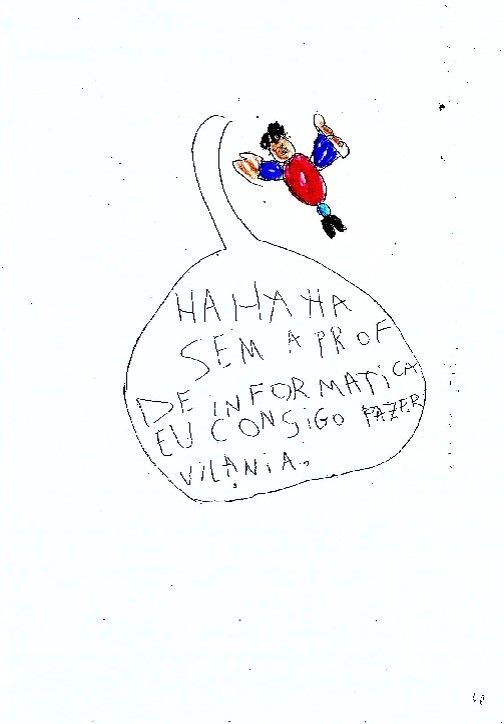 HA HA HA
SEM A PROF
DE INFORMATICA
EU CONSIGO FAZER
VILANIA.